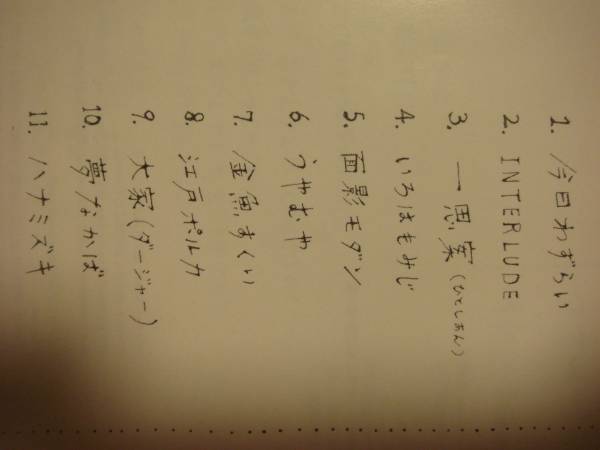 1. 今日わずらい
2. INTERLUDE
3. 一思案(ひとしあん)
4. いろはもみじ
5. 面影モダン
6. うやむや
7. 金魚すくい
8. 江戸ポルカ
9. 大家(ダージャー)
10. 夢なかば
11. ハナミズキ